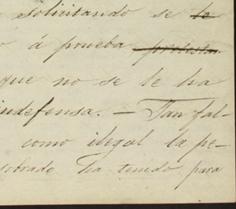 solicitando se le
o á prueba
que no se le ha
indefensa. — Tan fal-
como ilegal la pe-
sobrado ha tenido para